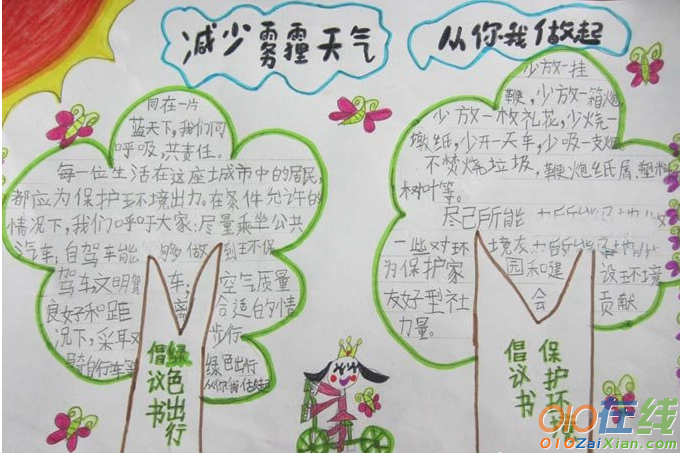 减少雾霾天气
从你我做起
同在一片
蓝天下,我们同
呼吸,共责任。
每一位生活在这座城市中的居民,
都应为保护环境出力。在条件允许的
情况下,我们呼吁大家:尽量乘坐公共
汽车;自驾车能够做到环保
驾车文明驾车;空气质量
良好和距离合适的情
况下,采取步行
骑自行车等绿色出行
从你我做起
绿色出行
倡议书
少放一挂
鞭,少放一箱炮,
少放一枚礼花,少烧一
墩纸,少开一天车,少吸一支烟
不焚烧垃圾,鞭炮纸屑,塑料
树叶等。
尽己所能
一些对环境友
为保护家园和建设环境
友好型社会贡献
力量。
保护环境
倡议书
010在线
010ZaiXian.com